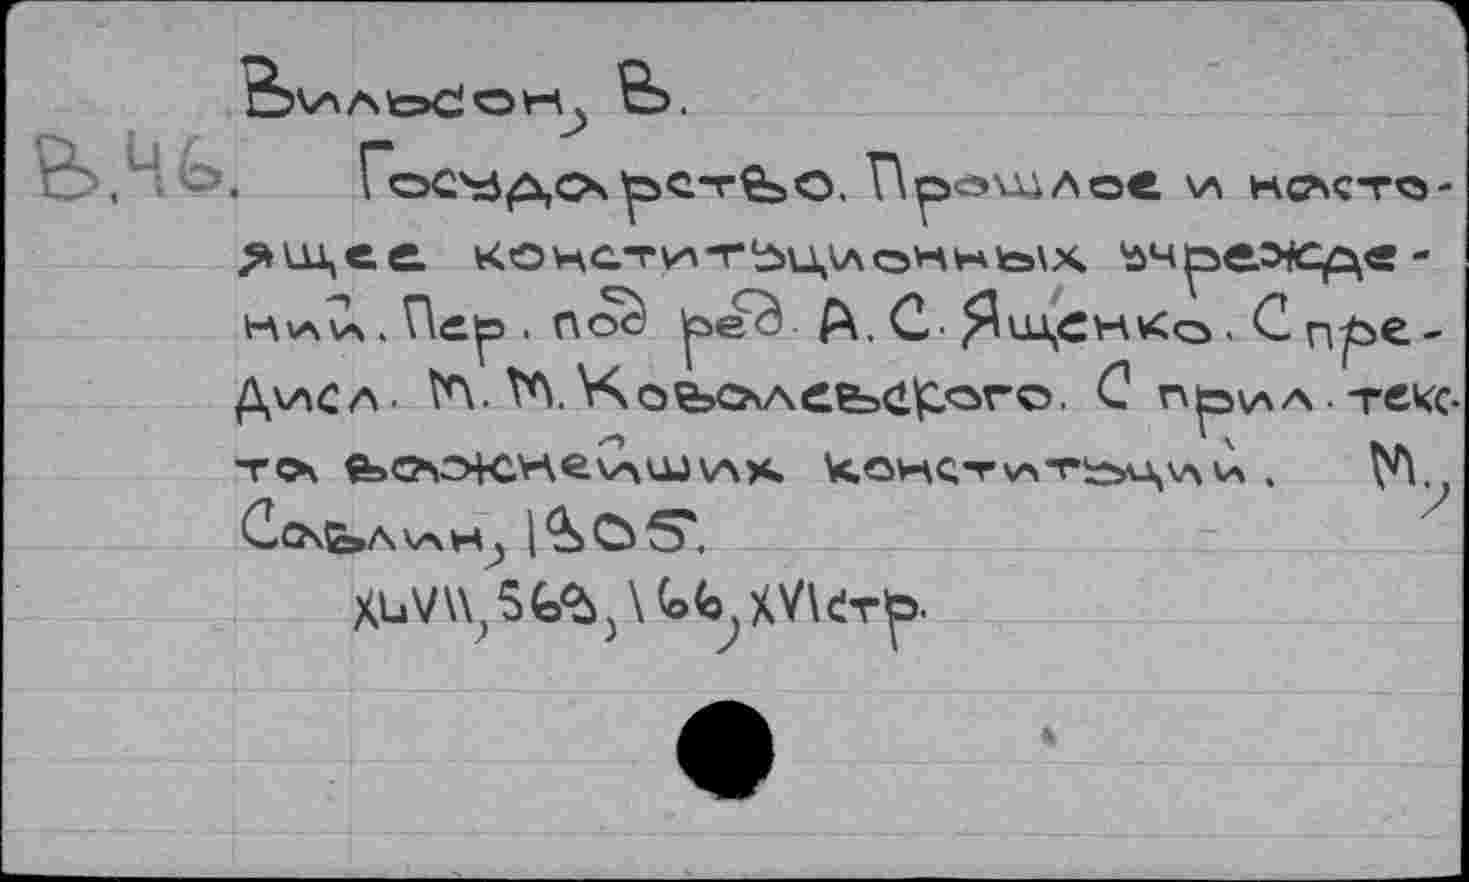 Вильсон, В.
В.46. Государство. Прошлое и насто-
ящее конституционных учрежде-
ний. Пер. под ред. А. С. Ященко. С пре-
дисл. М. М. Ковалевского. С прил. текс-
та важнейших конституций. М.,
Саблин, 1905.
XLVII, 568, 166, XVI стр.